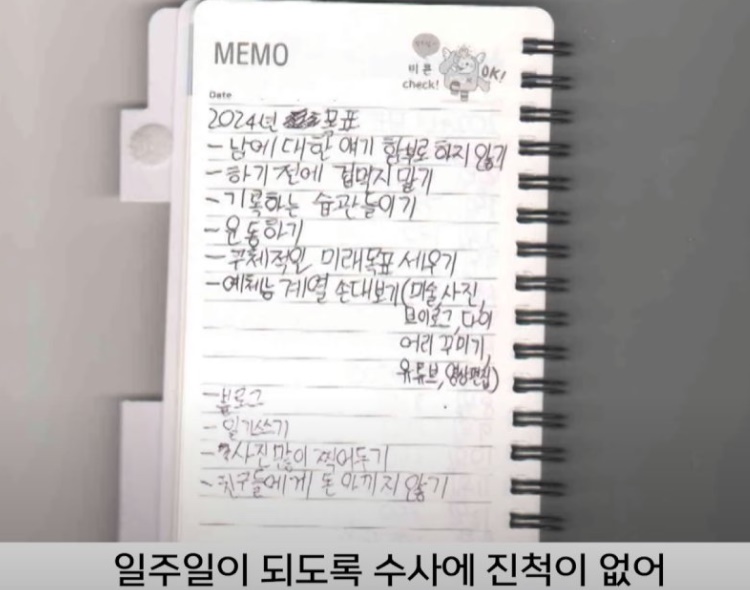 MEMO
비콘
check!
OK!
Date
2024년 목표
- 남에 대한 얘기 함부로 하지 않기
- 하기 전에 겁먹지 말기
- 기록하는 습관들이기
- 운동하기
- 구체적인 미래목표 세우기
- 예체능 계열 손대보기(미술,사진,
브이로그,다이
어리 꾸미기,
유튜브,영상편집)
- 블로그
- 일기쓰기
- 사진많이 찍어두기
- 친구들에게 돈 아끼지 않기
일주일이 되도록 수사에 진척이 없어